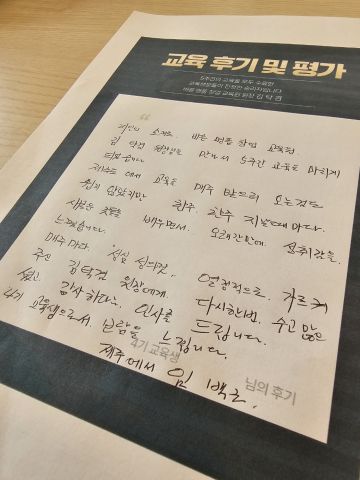 교육 후기 및 평가
5주간의 교육을 모두 수료한
교육생분들이 진정한 승리자입니다
바른 명품 창업 교육원 원장 김 탁 겸
지인의 소개로 바른 명품 창업 교육원
김 탁겸 원장님을 만나서 5주간 교육을 마치게
되었습니다.
제주도에서 교육을 매주 받으러 오는것도
쉽지 않았지만 한주, 한주 지날때마다.
새로운 것들을 배우면서. 오래간만에. 성취감을.
느꼈습니다.
매주마다. 성심 성의껏. 열정적으로. 가르켜
주신 김탁겸 원장님께. 다시한번. 수고 많은
셨고. 감사하다. 인사를 드립니다.
4기 교육생으로서. 보람을 느낍니다.
4기 교육생
제주에서 임 백
님의 후기